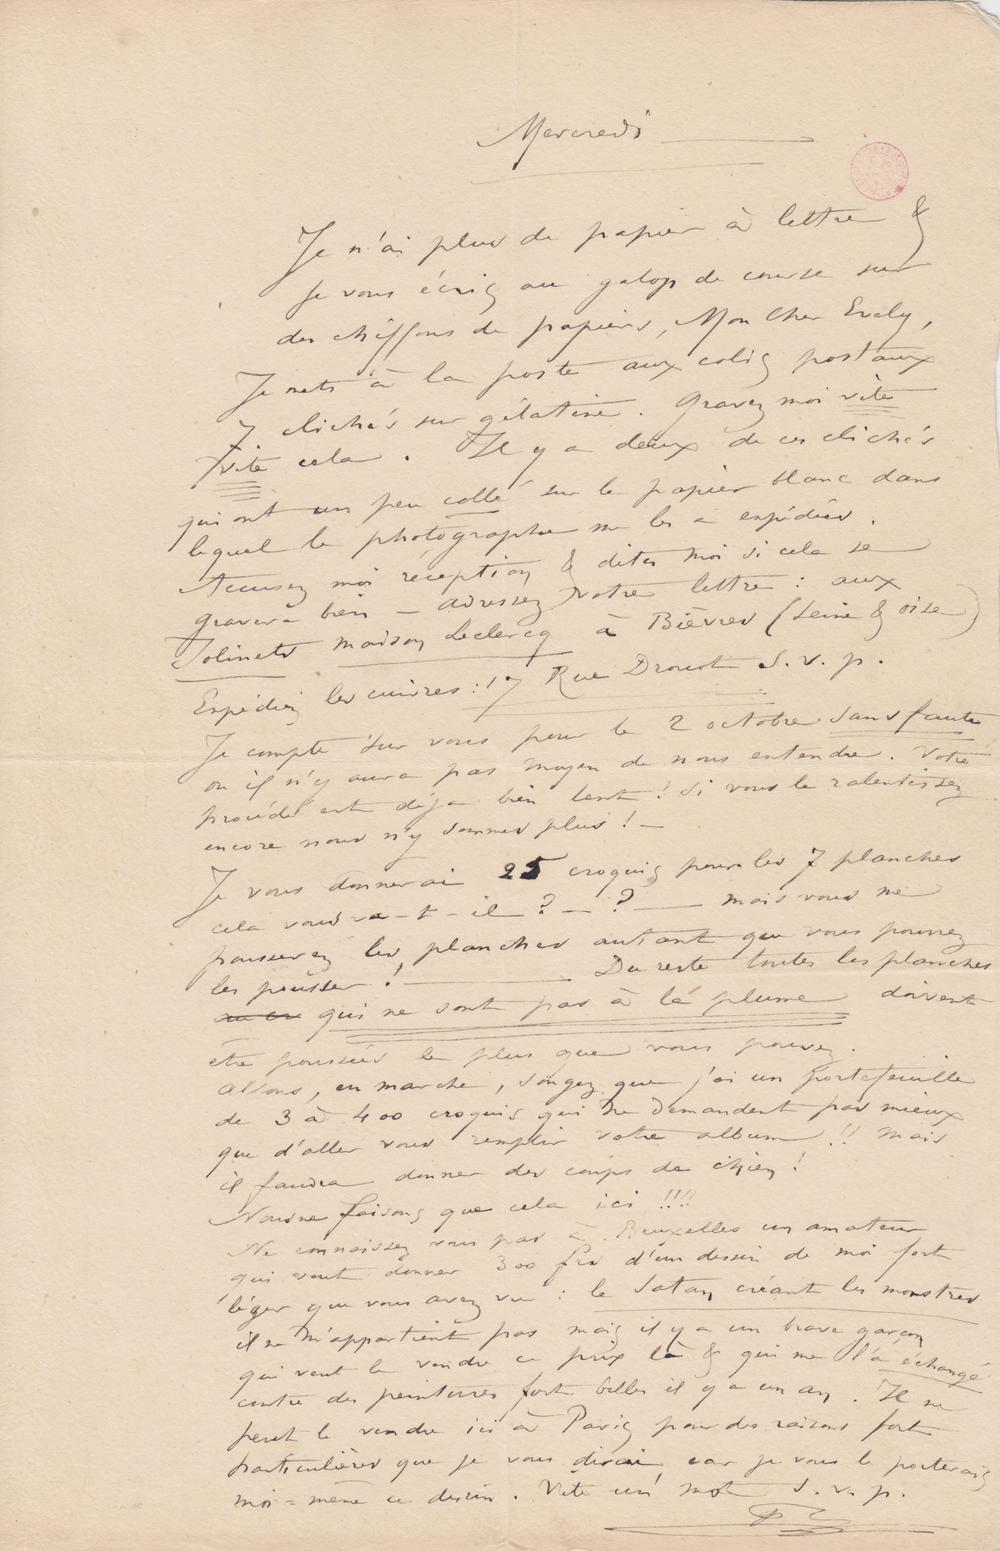 Mercredi
Je n'ai plus de papier à lettre &
je vous écris au galop de course sur
des chiffons de papiers, Mon Cher Evely,
Je mets à la poste aux colis postaux
7 clichés sur gélatine. Gravez moi vite
vite cela. Il y a deux de ces clichés
qui ont un peu collé sur le papier blanc dans
lequel le photographe me les a expédiés.
Accusez moi réception & dites moi si cela se
gravera bien – adressez votre lettre : aux
Jolinets maison Leclercq à Bièvres (Seine & oise)
Expédiez les cuivres : 17 Rue Drouot S. v. p.
Je compte sur vous pour le 2 octobre sans faute
ou il n'y aura pas moyen de nous entendre. Votre
procédé est déjà bien lent ! Si vous le ralentissez
encore nous n'y sommes plus ! –
Je vous donnerai 25 croquis pour les 7 planches
cela vous va-t-il ? – ? – mais vous me
pousserez les planches autant que vous pourrez
les pousser ! – Du reste toutes les planches
qui ne sont pas à la plume doivent
être poussées le plus que vous pouvez.
Allons, en marche, songez que j'ai un portefeuille
de 3 à 400 croquis qui ne demandent pas mieux
que d'aller vous remplir votre album !! Mais
il faudra donner des coups de chien !
Nous ne faisons que cela ici !!!!
Ne connaissez vous pas à Bruxelles un amateur
qui veut donner 300 frs d'un dessin de moi fort
léger que vous avez vu : le Satan créant les monstres
il ne m'appartient pas mais il y a un brave garçon
qui veut le vendre ce prix là & qui me l'a échangé
contre des peintures fort belles il y a un an. Il ne
peut le vendre ici à Paris pour des raisons fort
particulières que je vous dirai car je vous le porterais
moi = même ce dessin. Vite un mot S. v. p.